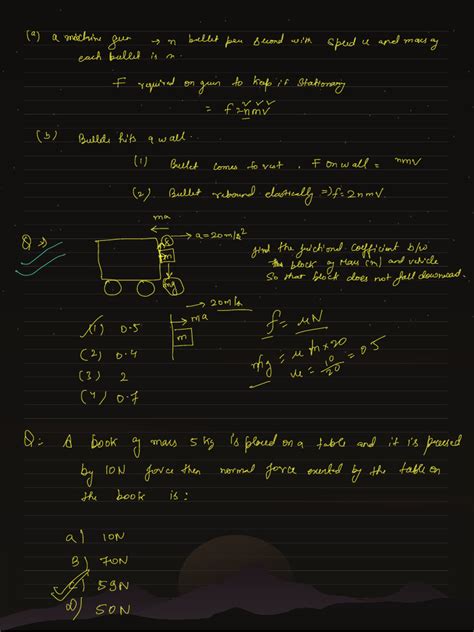 (a) a machine gun → n bullet per second with speed u and mass of
each bullet is m.
F required on gun to keep it stationary
= f = nmv
(b) Bullets hits a wall.
(1) Bullet comes to rest, F on wall = nmv
(2) Bullet rebound elastically => f = 2nmv.
ma
Q → a = 20 m/s²
m
mg
find the frictional coefficient b/w
the block of mass (m) and vehicle
So that block does not fall downward.
→ 20m/s
(1) 0.5
→ ma
m
f = μN
(2) 0.4
mg = μ m × 20
(3) 2
μ = 10/20 = 0.5
(4) 0.7
Q: A book of mass 5 kg is placed on a table and it is pressed
by 10N force then normal force exerted by the table on
the book is :
a) 10N
B) 70N
c) 59N
d) 50N